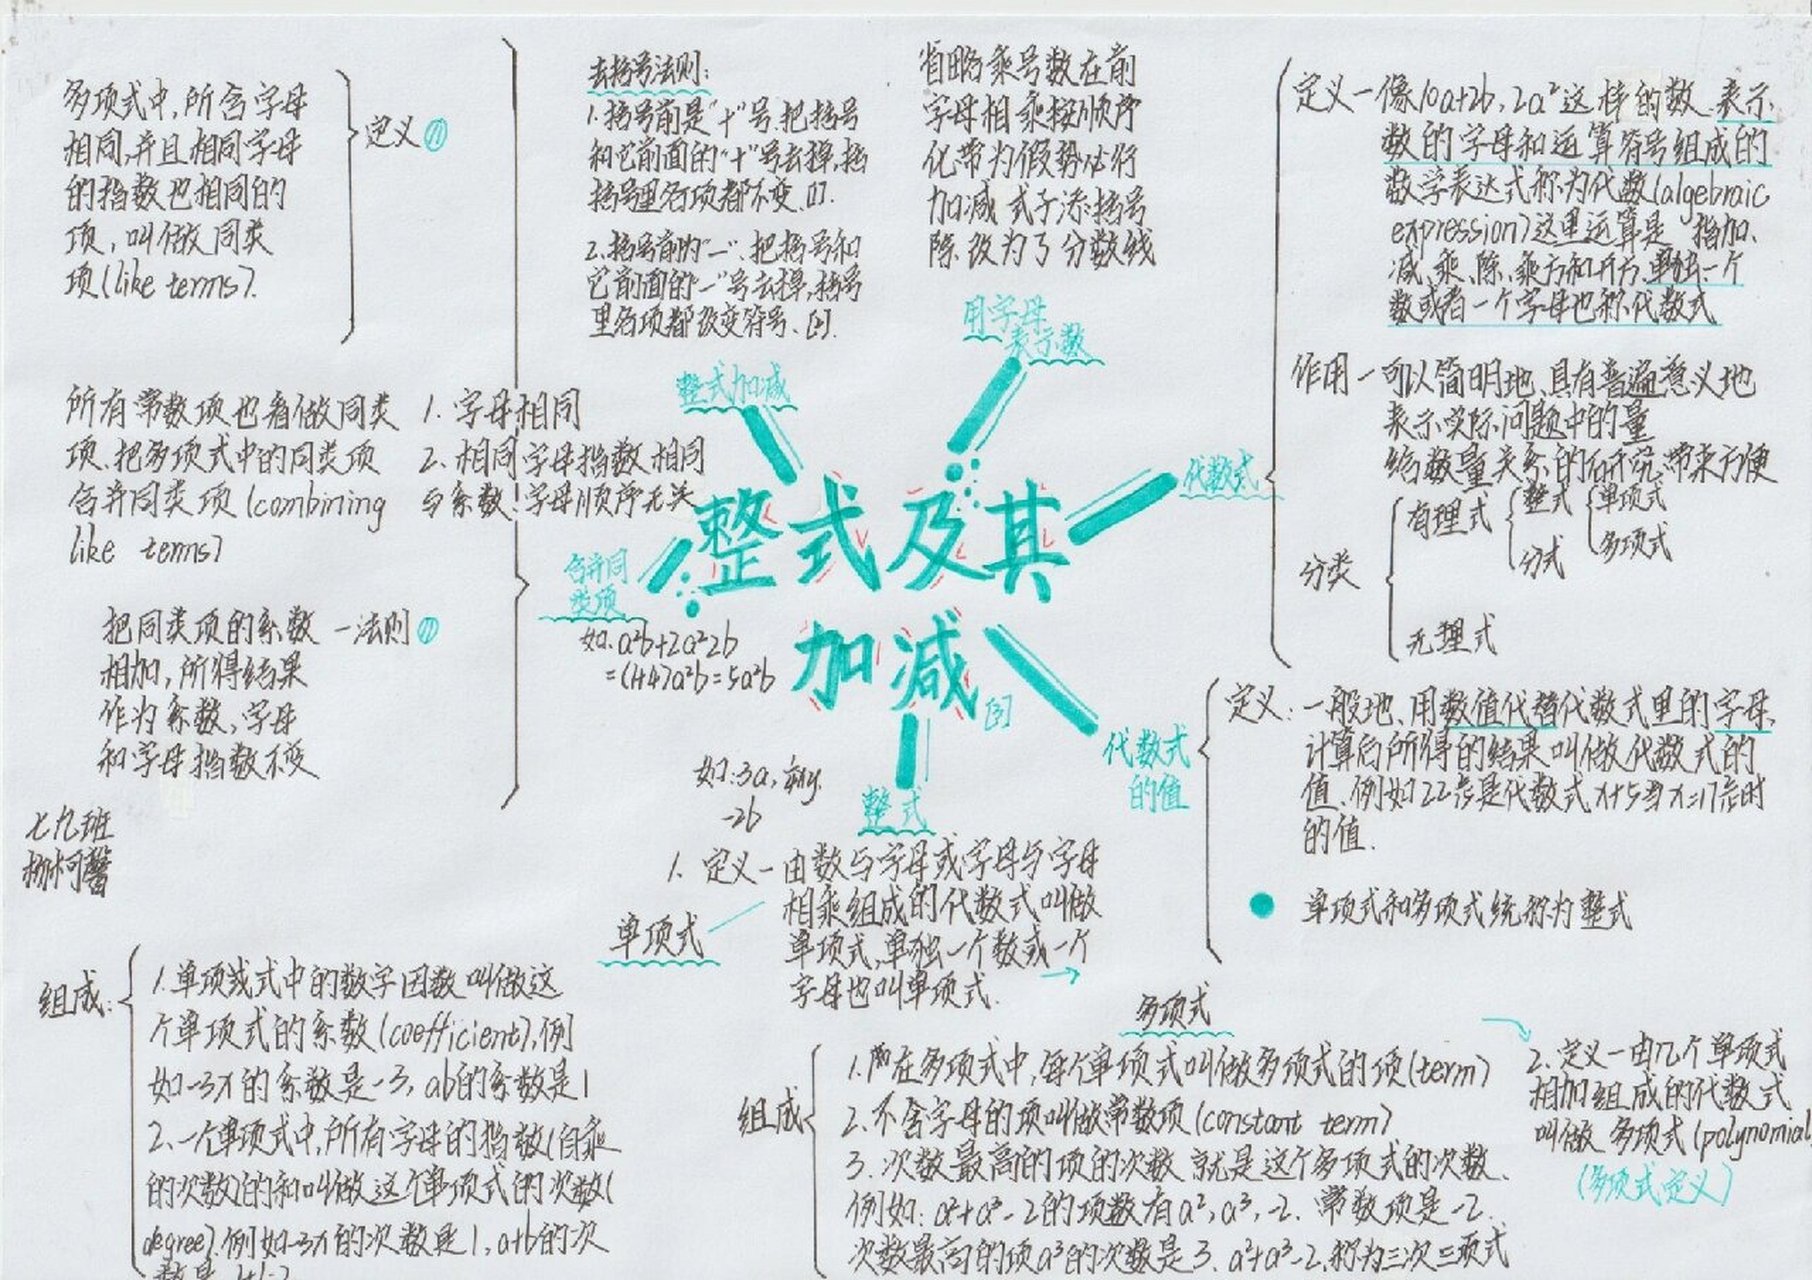 多项式中,所含字母
相同,并且相同字母
的指数也相同的
项,叫做同类
项(like terms).
定义
所有常数项也看做同类
项、把多项式中的同类项
合并同类项(combining
like terms)
1. 字母相同
2. 相同字母指数相同
与系数!字母顺序无关
把同类项的系数
相加,所得结果
作为系数,字母
和字母指数不变
一法则
七九班
去括号法则:
1.括号前是"十"号把括号
和它前面的"十"号去掉,括
括号里各项都不变、[1].
2.括号前的"一"、把括号和
它前面的"一"号去掉,括号
里各项都改变符号、[2].
整式加减
省略乘号数在前
字母相乘按顺序
化带为假势必行
加减 式子添括号
除.改为了分数线
用字母
表示数
定义一像10a+2b,2a²这样的数、表示
数的字母和运算符号组成的
数学表达式称为代数(algebraic
expression)这里运算是 指加、
减、乘、除、乘方和开方,单独一个
数或者一个字母也称代数式
作用一可以简明地、具有普遍意义地
表示实际问题中的量
给数量关系的研究带来方便
代数式
分类
有理式
整式
单项式
多项式
分式
无理式
整式及其
加减[3]
合并同
类项
如:a²b+2a²2b
=(1+4)a²b=5a²b
代数式
的值
定义:一般地、用数值代替代数式里的字母,
计算后所得的结果叫做代数式的
值、例如22岁是代数式x+5当x=17岁时
的值.
单项式和多项式统称为整式
如:3a,
-2b
整式
1. 定义一由数与字母或字母与字母
相乘组成的代数式叫做
单项式,单独一个数或一个
字母也叫单项式.
单项式
组成:
1.单项或式中的数字因数叫做这
个单项式的系数(coefficient),例
如-3x的系数是-3,ab的系数是1
2.一个单项式中,所有字母的指数(自乘
的次数)的和叫做这个单项式的次数(
degree).例如-3x的次数是1,a+b的次
多项式
组成
1.在多项式中,每个单项式叫做多项式的项(term)
2.不含字母的项叫做常数项(constant term)
3.次数最高的项的次数 就是这个多项式的次数、
例如:a²+a³-2的项数有a²,a³,-2. 常数项是-2
次数最高的项a³的次数是3、a²+a³-2、称为三次三项式
2.定义一由几个单项式
相加组成的代数式
叫做 多项式(polynomial
(多项式定义)